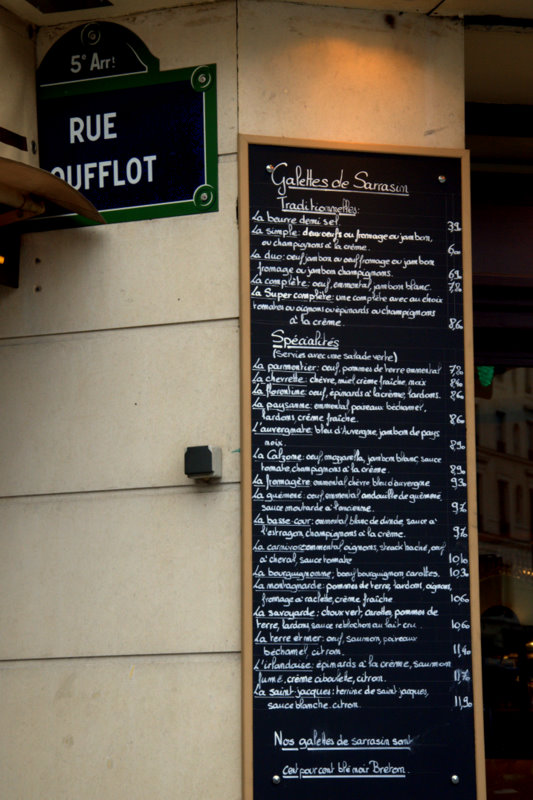 5e Arrt
RUE
OUFFLOT
Galettes de Sarrasin
Traditionnelles:
La beurre demi sel 3,9
La simple: deux oeufs ou fromage ou jambon,
ou champignons à la crème. 6,00
La duo: oeuf jambon ou oeuf fromage ou jambon
fromage ou jambon champignons. 6,9
La complète: oeuf, emmental, jambon blanc. 7,8
La Super complète: une complète avec au choix
tomates ou oignons ou épinards ou champignons
à la crème. 8,60
Spécialités
(Servies avec une salade verte)
La parmentier: oeuf, pommes de terre emmental 7,80
La chevrette: chèvre, miel, crème fraîche, noix 8,40
La florentine: oeuf, épinards à la crème, lardons. 8,60
La paysanne: emmental poireaux béchamel,
lardons, crème fraîche. 8,60
L'auvergnate: bleu d'Auvergne, jambon de pays
noix. 8,90
La Calzone: oeuf, mozzarella, jambon blanc, sauce
tomate, champignons à la crème. 8,90
La fromagère: emmental chèvre bleu d'auvergne 9,30
La guémené: oeuf, emmental andouille de guémené,
sauce moutarde à l'ancienne. 9,70
La basse cour: emmental, blanc de dinde, sauce à
l'estragon, champignons à la crème. 9,70
La carnivore: emmental, oignons, steack haché, oeuf
à cheval, sauce tomate 10,10
La bourguignonne: boeuf bourguignon, carottes. 10,30
La montagnarde: pommes de terre, lardons, oignons,
fromage à raclette, crème fraîche 10,60
La savoyarde: choux vert, carottes, pommes de
terre, lardons, sauce reblochon au lait cru. 10,60
La terre et mer: oeuf, saumon, poireaux
béchamel, citron. 11,40
L'irlandaise: épinards à la crème, saumon
fumé, crème ciboulette, citron. 11,70
La saint-jacques: terrine de saint jacques,
sauce blanche. citron. 11,90
Nos galettes de sarrasin sont
cent pour cent blé noir Breton.